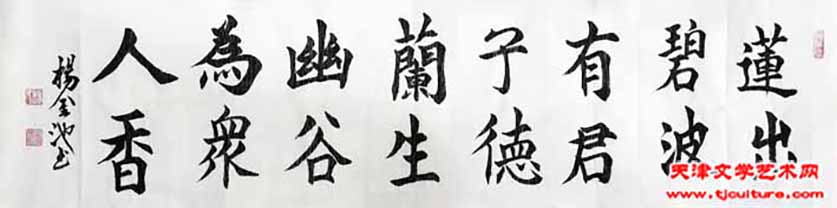 蓮出
碧波
有君
子德
蘭生
幽谷
為眾
人香
楊金池書
天津文学艺术网
www.tjculture.com